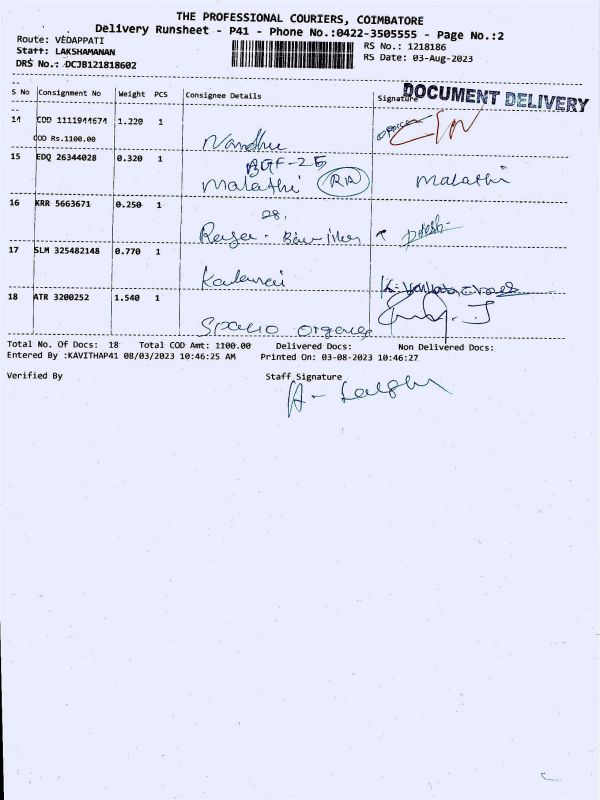 THE PROFESSIONAL COURIERS, COIMBATORE
Delivery Runsheet - P41 - Phone No.:0422-3505555 - Page No.:2
Route: VEDAPPATI RS No.: 1218186
Staff: LAKSHAMANAN RS Date: 03-Aug-2023
DRS No.: DCJB121818602
DOCUMENT DELIVERY
S No Consignment No Weight PCS Consignee Details Signature
14 COD 1111944674 1.220 1
COD Rs.1100.00 Nandhu
15 EDQ 26344028 0.320 1 BGF-25
Malathi RA Malathi
16 KRR 5663671 0.250 1 28,
17 SLM 325482148 0.770 1
18 ATR 3200252 1.540 1
Total No. Of Docs: 18 Total COD Amt: 1100.00 Delivered Docs: Non Delivered Docs:
Entered By :KAVITHAP41 08/03/2023 10:46:25 AM Printed On: 03-08-2023 10:46:27
Verified By Staff Signature